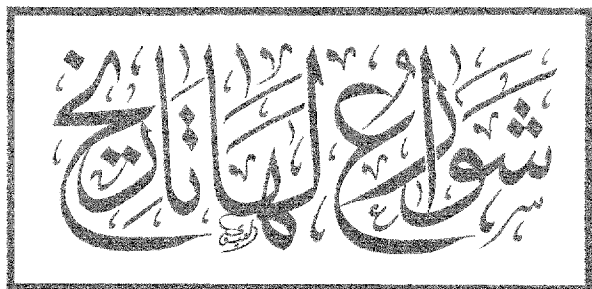 شوارع لها تاريخ